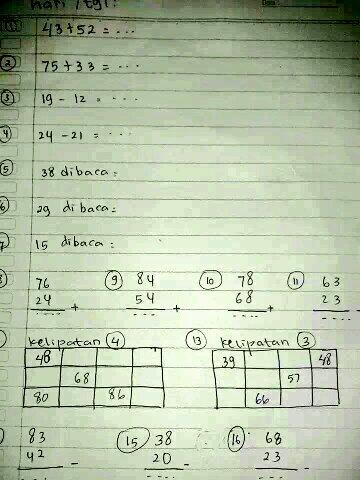 Hari / tgl :
① 43 + 52 = ...
② 75 + 33 = ...
③ 19 - 12 = ...
④ 24 - 21 = ...
⑤ 38 dibaca :
6 29 di baca :
7 15 dibaca :
8 76 ⑨ 84 ⑩ 78 ⑪ 63
24 + 54 + 68 + 23 -
.... .... .... ....
kelipatan ④ ⑬ kelipatan ③
48 39 48
68 57
80 86 66
83 ⑮ 38 ⑯ 68
42 - 20 - 23 -